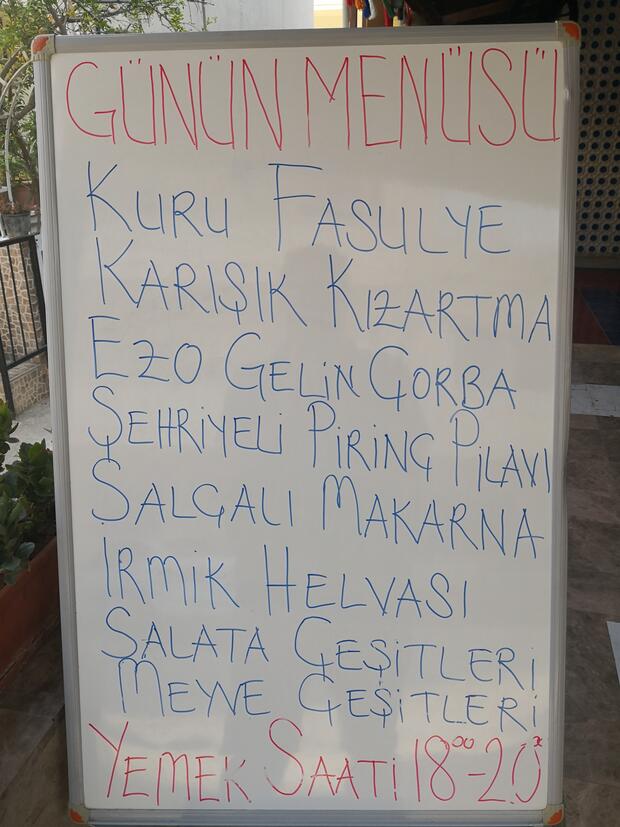 GÜNÜN MENÜSÜ
KURU FASULYE
KARIŞIK KIZARTMA
EZO GELİN ÇORBA
ŞEHRİYELİ PİRİNÇ PİLAVI
SALÇALI MAKARNA
IRMİK HELVASI
SALATA ÇEŞİTLERİ
MEYVE ÇEŞİTLERİ
YEMEK SAATİ 18⁰⁰-20